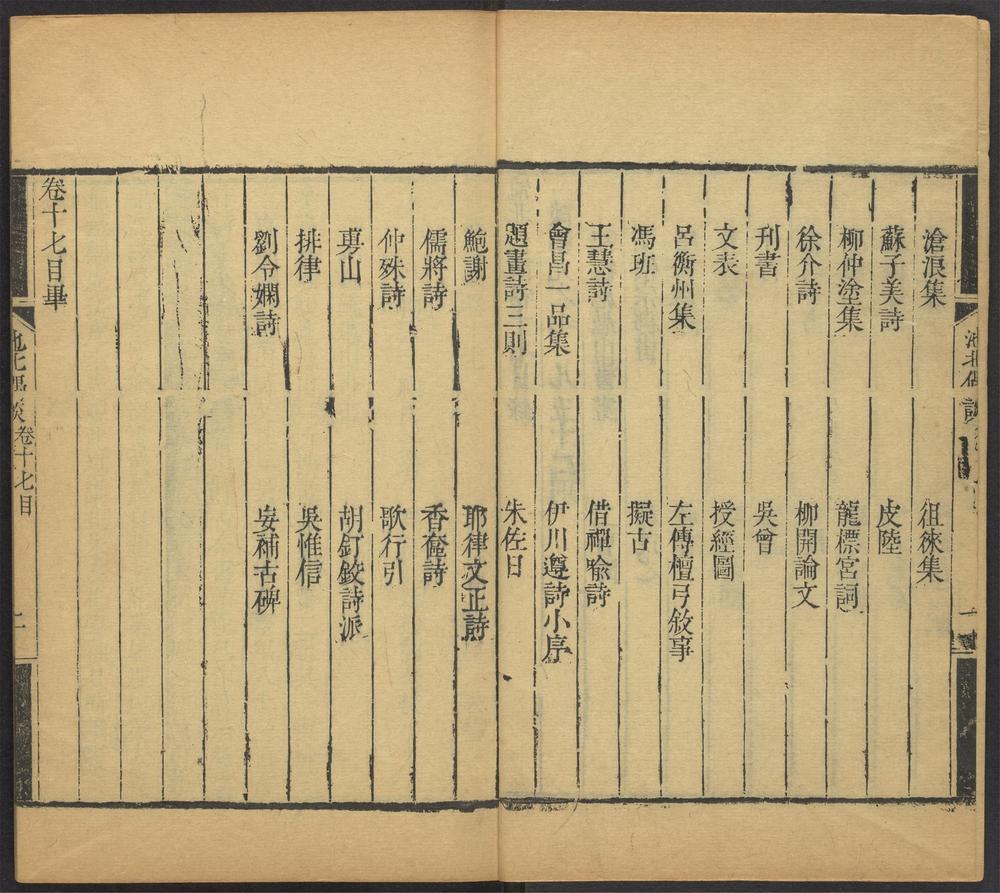 滄浪集 徂徠集
蘇子美詩 皮陸
柳仲塗集 龍標宮詞
徐介詩 柳開論文
刊書 吳曾
文表 授經圖
呂衡州集 左傳檀弓敘事
馮班 擬古
王慧詩 借禪喻詩
會昌一品集 伊川遵詩小序
題畫詩三則 朱佐日
鮑謝 耶律文正詩
儒將詩 香奩詩
仲殊詩 歌行引
粤山 胡釘鉸詩派
排律 吳惟信
劉令嫻詩 妄補古碑
卷十七目畢
池北偶談 卷十七目